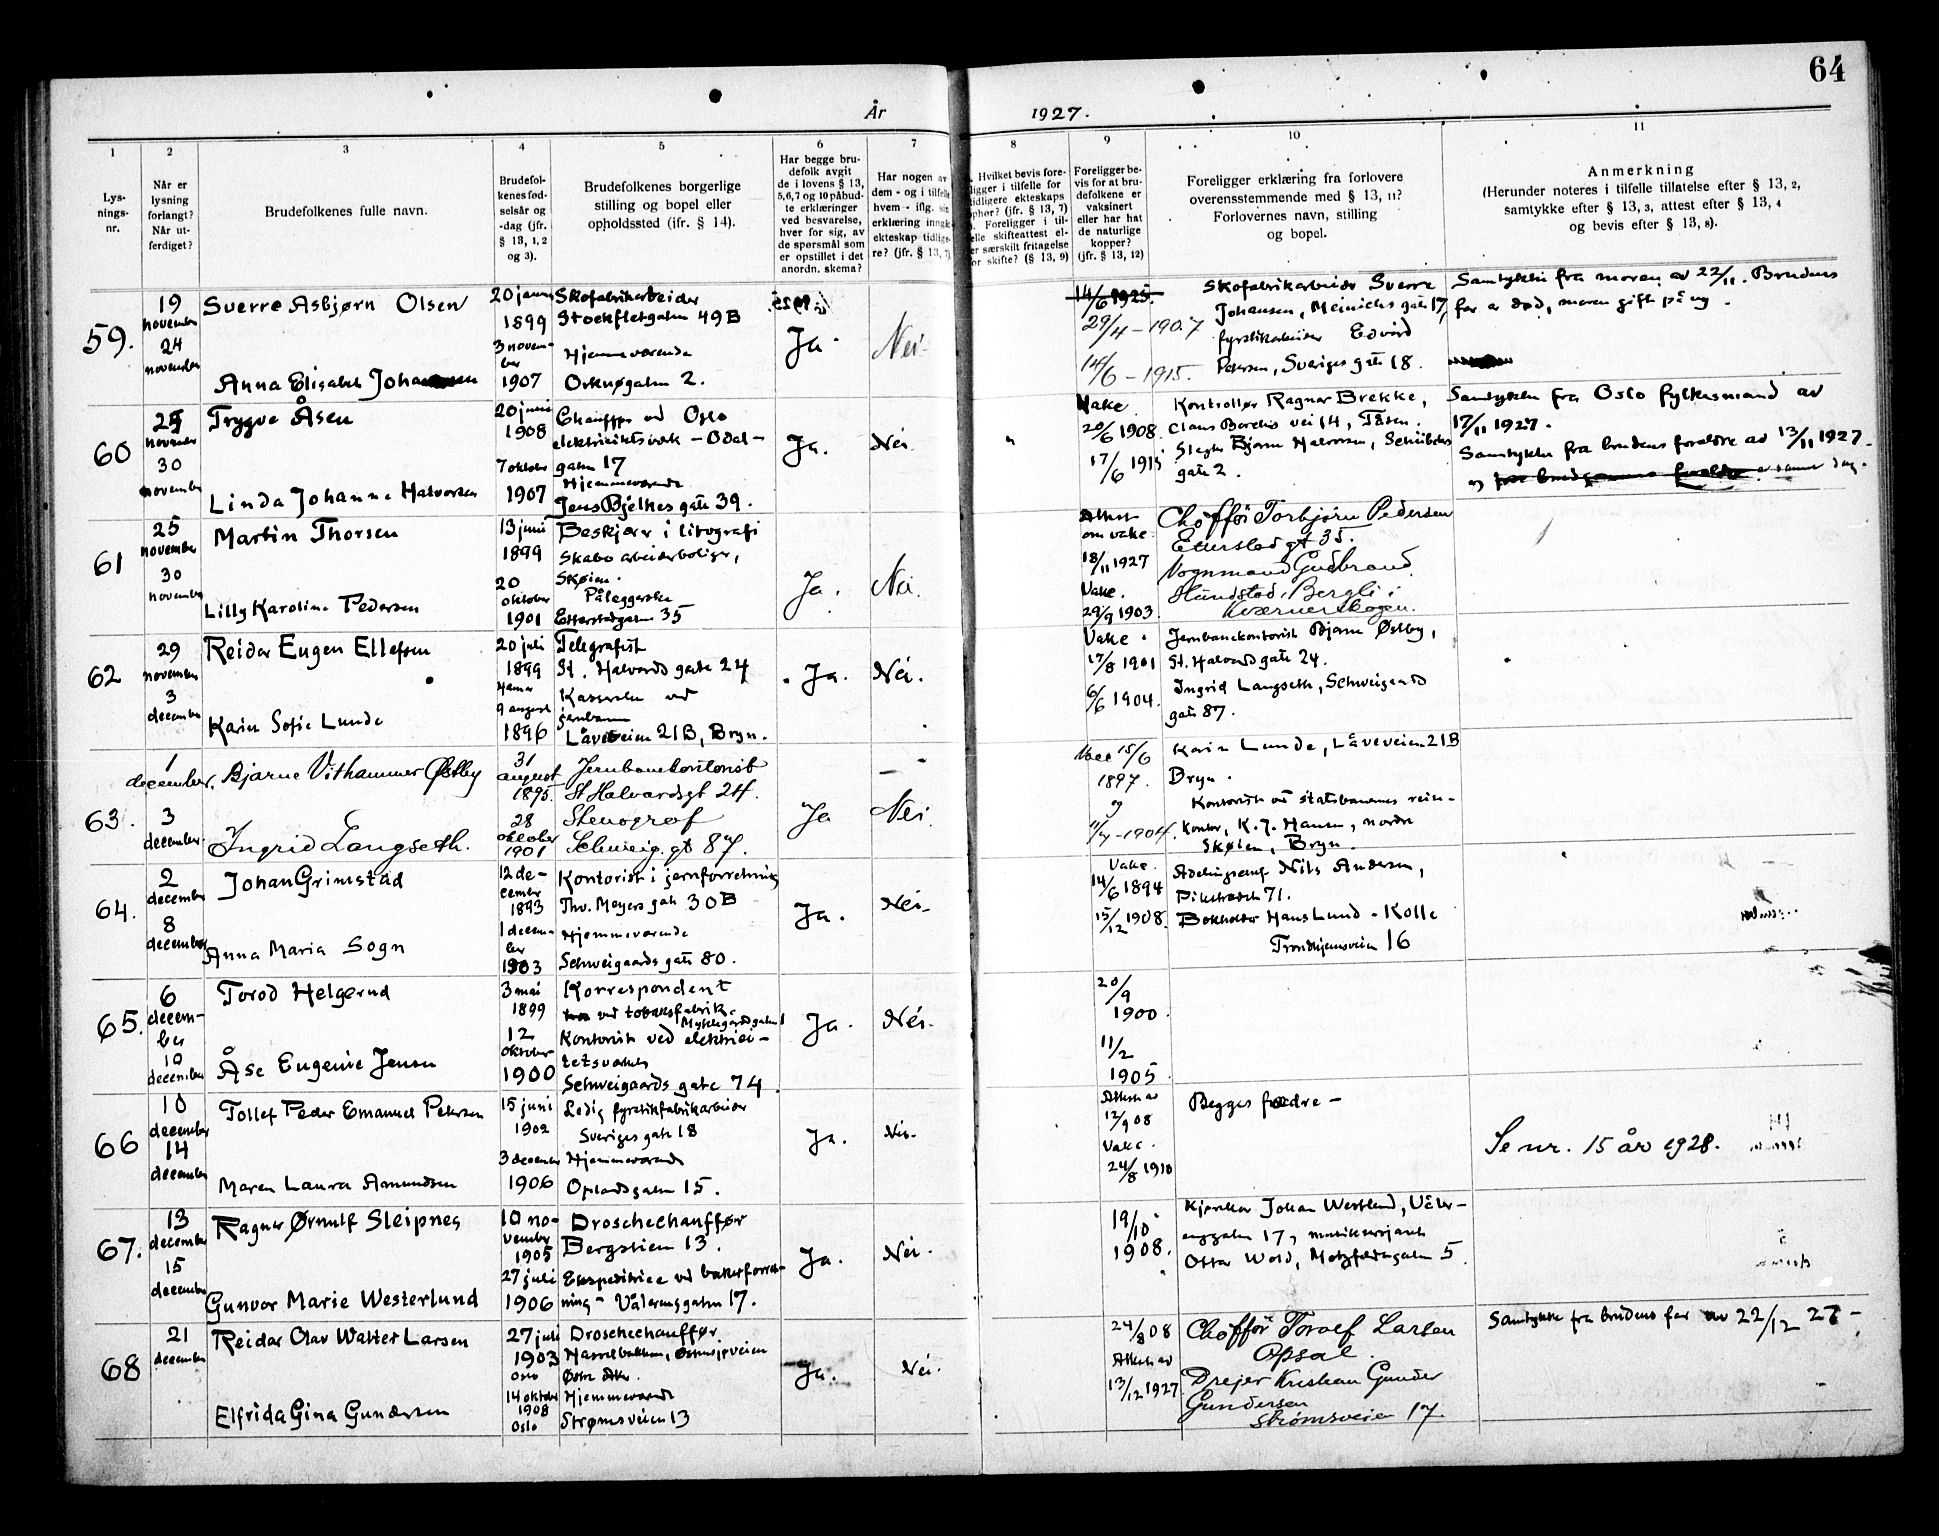 64
År 1927.
1 2 3 4 5 6 7 8 9 10 11
Lysningsnr.
Når er lysning forlangt? Når utferdiget?
Brudefolkenes fulle navn.
Brudefolkenes fødselsår og -dag (jfr. § 13, 1, 2 og 3).
Brudefolkenes borgerlige stilling og bopel eller opholdssted (jfr. § 14).
Har begge brudefolk avgit de i lovens § 13, 5,6,7 og 10 påbudte erklæringer ved besvarelse, hver for sig, av de spørsmål som er opstillet i det anordn. skema?
Har nogen av dem - og i tilfelle hvem - iflg. sin erklæring inngått ekteskap tidligere? (jfr. § 13, 7)
Hvilket bevis foreligger i tilfelle for tidligere ekteskaps ophør? (jfr. § 13, 7)
Foreligger bevis for at brudefolkene er vaksinert eller har hat de naturlige kopper? (jfr. § 13, 12)
Foreligger erklæring fra forlovere overensstemmende med § 13, 11? Forlovernes navn, stilling og bopel.
Anmerkning
(Herunder noteres i tilfelle tillatelse efter § 13, 2, samtykke efter § 13, 3, attest efter § 13, 4 og bevis efter § 13, 8).
59.
19 november
24 november
Sverre Asbjørn Olsen
Anna Elisabet
20 1899
3 november 1907
Skofabrikarbeider
Stockfletgaten 49B
Hjemmeværende
Orknøgaten 2.
Ja.
Nei.
14/6 1925.
29/4 - 1907
14/6 - 1915.
Skofabrikarbeider Sverre
Johansen, Meinichs gate 17,
fyrstikarbeider Edvard
Petersen, Sveriges gate 18.
Samtykke fra moren av 22/11. Brudens
far er død, moren gift på ny.
60
november
30 november
Trygve Åsen
Linda Johanne Halvorsen
20 juni 1908
7 oktober 1907
Chauffør ved Oslo
elektricitetsverk - Odals-
gaten 17
Hjemmeværende
Jens Bjelkes gate 39.
Ja.
Nei.
Vake
20/6 1908.
17/6 1915
Kontrollør Ragnar Brekke,
Claus Borchs vei 14, Tåsen.
Bjarne Halvorsen, Schübelers
gate 2.
Samtykke fra Oslo fylkesmand av
17/11 1927.
Samtykke fra brudens foreldre av 13/11 1927
61
25 november
30 november
Martin Thorsen
Lilly Karoline Pedersen
13 juni 1899
20 oktober 1901
Beskjærer i litografi
Skabo arbeiderboliger,
Skøien.
Påleggerske
Etterstadgaten 35
Ja.
Nei.
Attest
om vake.
18/11 1927
Vake.
29/9 1903.
Choffør Torbjørn Pedersen
Etterstad gt 35.
Vognmand Gudbrand
Bergli i
Kværnerskogen.
62
29 november
3 december
Reidar Eugen Ellefsen
Karin Sofie Lunde
20 juli 1899
9 august 1896
Telegrafist
St. Halvards gate 24
Kasserske ved
jernbanen
Låveveien 21B, Bryn.
Ja.
Nei.
Vake.
17/8 1901
6/6 1904.
Jernbanekontorist Bjarne Østby,
St. Halvards gate 24.
Ingrid Langseth, Schweigaards
gate 87.
63.
1 december.
3 december.
Bjarne Vithammer Østby
Ingrid Langseth.
31 august 1895.
28 oktober 1901
Jernbanekontorist
St Halvardsgt 24.
Stenograf
Schweig. gt 87.
Ja
Nei.
Vacc 15/6
1897.
og
- 1904.
Karin Lunde, Låveveien 21B
Bryn.
Kontorist ved statsbanernes reise-
kontor, K. J. Hansen, nordre
Skøien, Bryn.
64.
2 december
8 december
Johan Grimstad
Anna Maria Sogn
12 december 1893
1 december 1903
Kontorist i jernforretning
Thv. Meyers gate 30B
Hjemmeværende
Schweigaards gate 80.
Ja.
Nei.
Vake.
14/6 1894
15/12 1908.
Nils Andersen,
Pilestrædet 71.
Bokholder Hans Lund-Kolle
Trondhjemsveien 16
65.
6 december
10 december
Torod Helgerud
Åse Eugenie Jensen
3 mai 1899
12 oktober 1900
Korrespondent
ved tobaksfabrik.
Myklegårdsgaten 1
Kontorist ved elektrici-
tetsverket
Schweigaards gate 74.
Ja.
Nei.
20/9 1900.
11/2 1905.
66
10 december
14 december
Tollef Peder Emanuel Petersen
Maren Laura Amundsen
15 juni 1902
3 december 1906
Ledig fyrstikfabrikarbeider
Sveriges gate 18
Hjemmeværende
Oplandsgaten 15.
Ja.
Nei.
Attest av
12/9 08
Vake.
24/8 1910
Begges fædre -
Se nr. 15 år 1928.
67.
13 december
15 december
Ragnar Ørnulf Sleipnes
Gunvor Marie Westerlund
10 november 1905
27 juli 1906
Droschechauffør
Bergstien 13.
Ekspeditrice ved bakerforret-
ning - Vålerenggaten 17.
Ja.
Nei.
19/10 1908.
Johan Westlund, Våler-
enggaten 17, musikersjant
Ottar Wold, Motzfeldtsgaten 5.
68
21 december
Reidar Olav Walter Larsen
Elfrida Gina Gundersen
27 juli 1903 Oslo
14 oktober 1908 Oslo
Droschechauffør.
Hasselbakken, Østensjøveien
Østre Aker.
Hjemmeværende
Strømsveien 13
Ja.
Nei.
24/8 08
Attest av
13/12 1927
Choffør Toralf Larsen
Opsal.
Drejer Kristian Gunder
Gundersen
Strømsveien 17.
Samtykke fra brudens far av 22/12 27 -